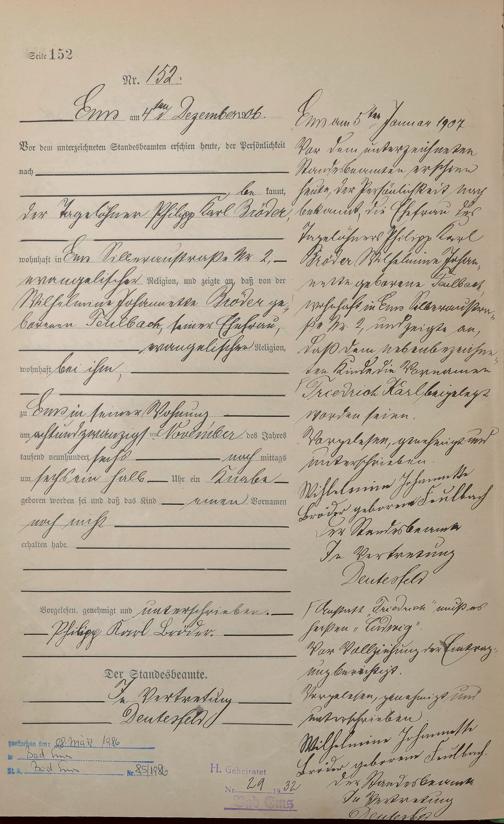 Seite 152
Nr. 152.
Ems am 4ten Dezember 1906.
Vor dem unterzeichneten Standesbeamten erschien heute, der Persönlichkeit
nach
be kannt,
der Tagelöhner Philipp Karl Bröder,
wohnhaft in Ems Silberaustraße Nr. 2,
evangelischer Religion, und zeigte an, daß von der
Wilhelmine Johannette Bröder ge-
borenen Faulbach, seiner Ehefrau,
evangelischer Religion,
wohnhaft bei ihm,
zu Ems in seiner Wohnung
am achtundzwanzigsten November des Jahres
tausend neunhundert sechs nach mittags
um sechs ein halb Uhr ein Knabe
geboren worden sei und daß das Kind einen Vornamen
noch nicht
erhalten habe.
Vorgelesen, genehmigt und unterschrieben.
Philipp Karl Bröder.
Der Standesbeamte.
In Vertretung
Deutesfeld
gestorben am: 08. März 1986
in Bad Ems
St. A. Bad Ems Nr. 85/1986
H. Geheiratet
Nr. 29 1932
Bad Ems
Ems am 5ten Januar 1907
Vor dem unterzeichneten
Standesbeamten erschien
heute, der Persönlichkeit nach
bekannt, die Ehefrau des
Tagelöhners Philipp Karl
Bröder Wilhelmine Johan-
nette geborene Faulbach,
wohnhaft in Ems Silberaustra-
ße Nr. 2, und zeigte an,
daß dem nebenbezeichne-
ten Kinde die Vornamen
Friedrich Karl beigelegt
worden seien.
Vorgelesen, genehmigt und
unterschrieben.
Wilhelmine Johannette
Bröder geborene Faulbach
Der Standesbeamte
In Vertretung
Deutesfeld
Anstatt "Friedrich" muß es
heißen "Ludwig".
Vor Vollziehung der Eintrag-
ung berichtigt.
Vorgelesen, genehmigt und
unterschrieben
Wilhelmine Johannette
Bröder geborene Faulbach
Der Standesbeamte
In Vertretung
Deutesfeld